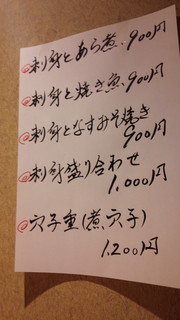 刺身とあら煮.900円
刺身と焼き魚.900円
刺身となすみそ焼き
900円
刺身盛り合わせ
1,000円
穴子重(煮穴子)
1.200円